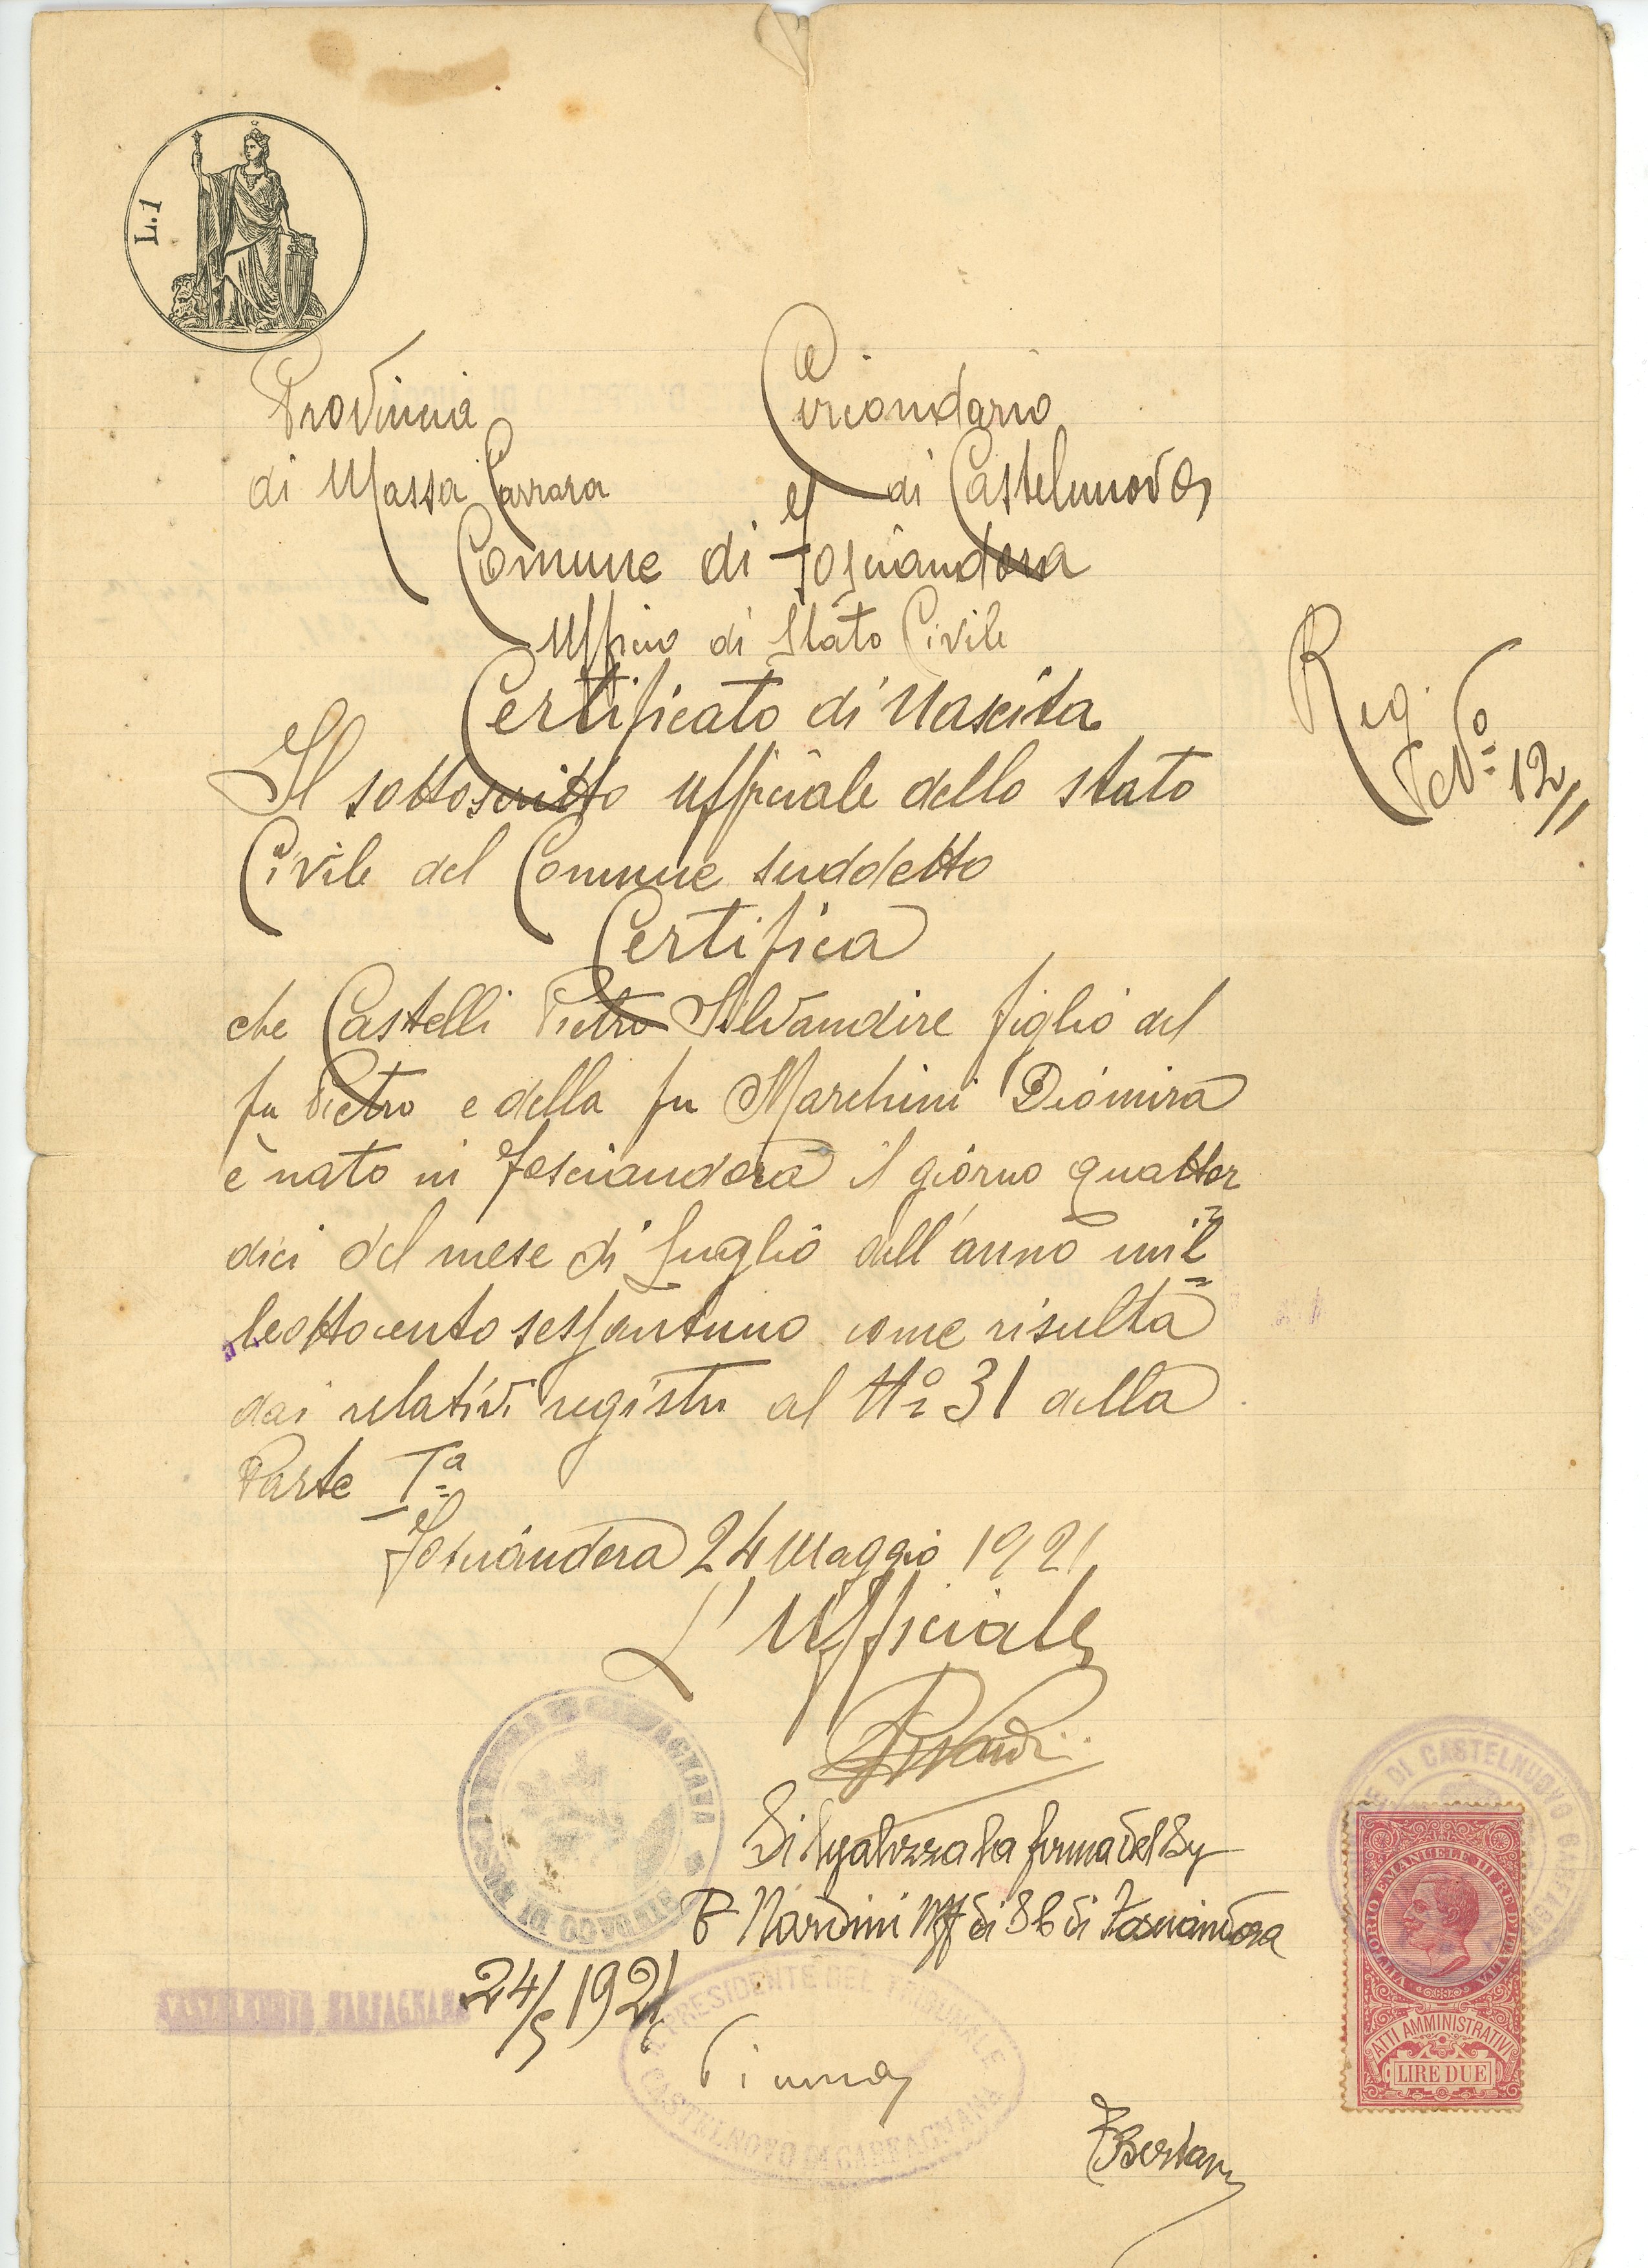 L.1
Provincia
di Massa Carrara
Circondario
di Castelnuovo
Comune di Fosciandora
Ufficio di Stato Civile
Certificato di Nascita
Reg. No 12
Il sottoscritto ufficiale dello stato
Civile del Comune suddetto
Certifica
che Castelli Pietro Silvandire figlio del
fu Pietro e della fu Marchini Diomira
è nato in Fosciandora il giorno quattor
dici del mese di Luglio dell'anno mil=
leottocento sessantuno come risulta
dai relativi registri al No 31 della
Parte Ia
Fosciandora 24 Maggio 1921
L'Ufficiale
Si legalizza la firma del Sg
P Nardini Uff di S C di Fosciandora
24/5 1921
SINDACO DI FOSCIANDORA DI GARFAGNANA
CASTELNUOVO GARFAGNANA
PRESIDENTE DEL TRIBUNALE
CASTELNOVO DI GARFAGNANA
DI CASTELNUOVO GARFAG
VITTORIO EMANUELE III RE D'ITALIA
ATTI AMMINISTRATIVI
LIRE DUE